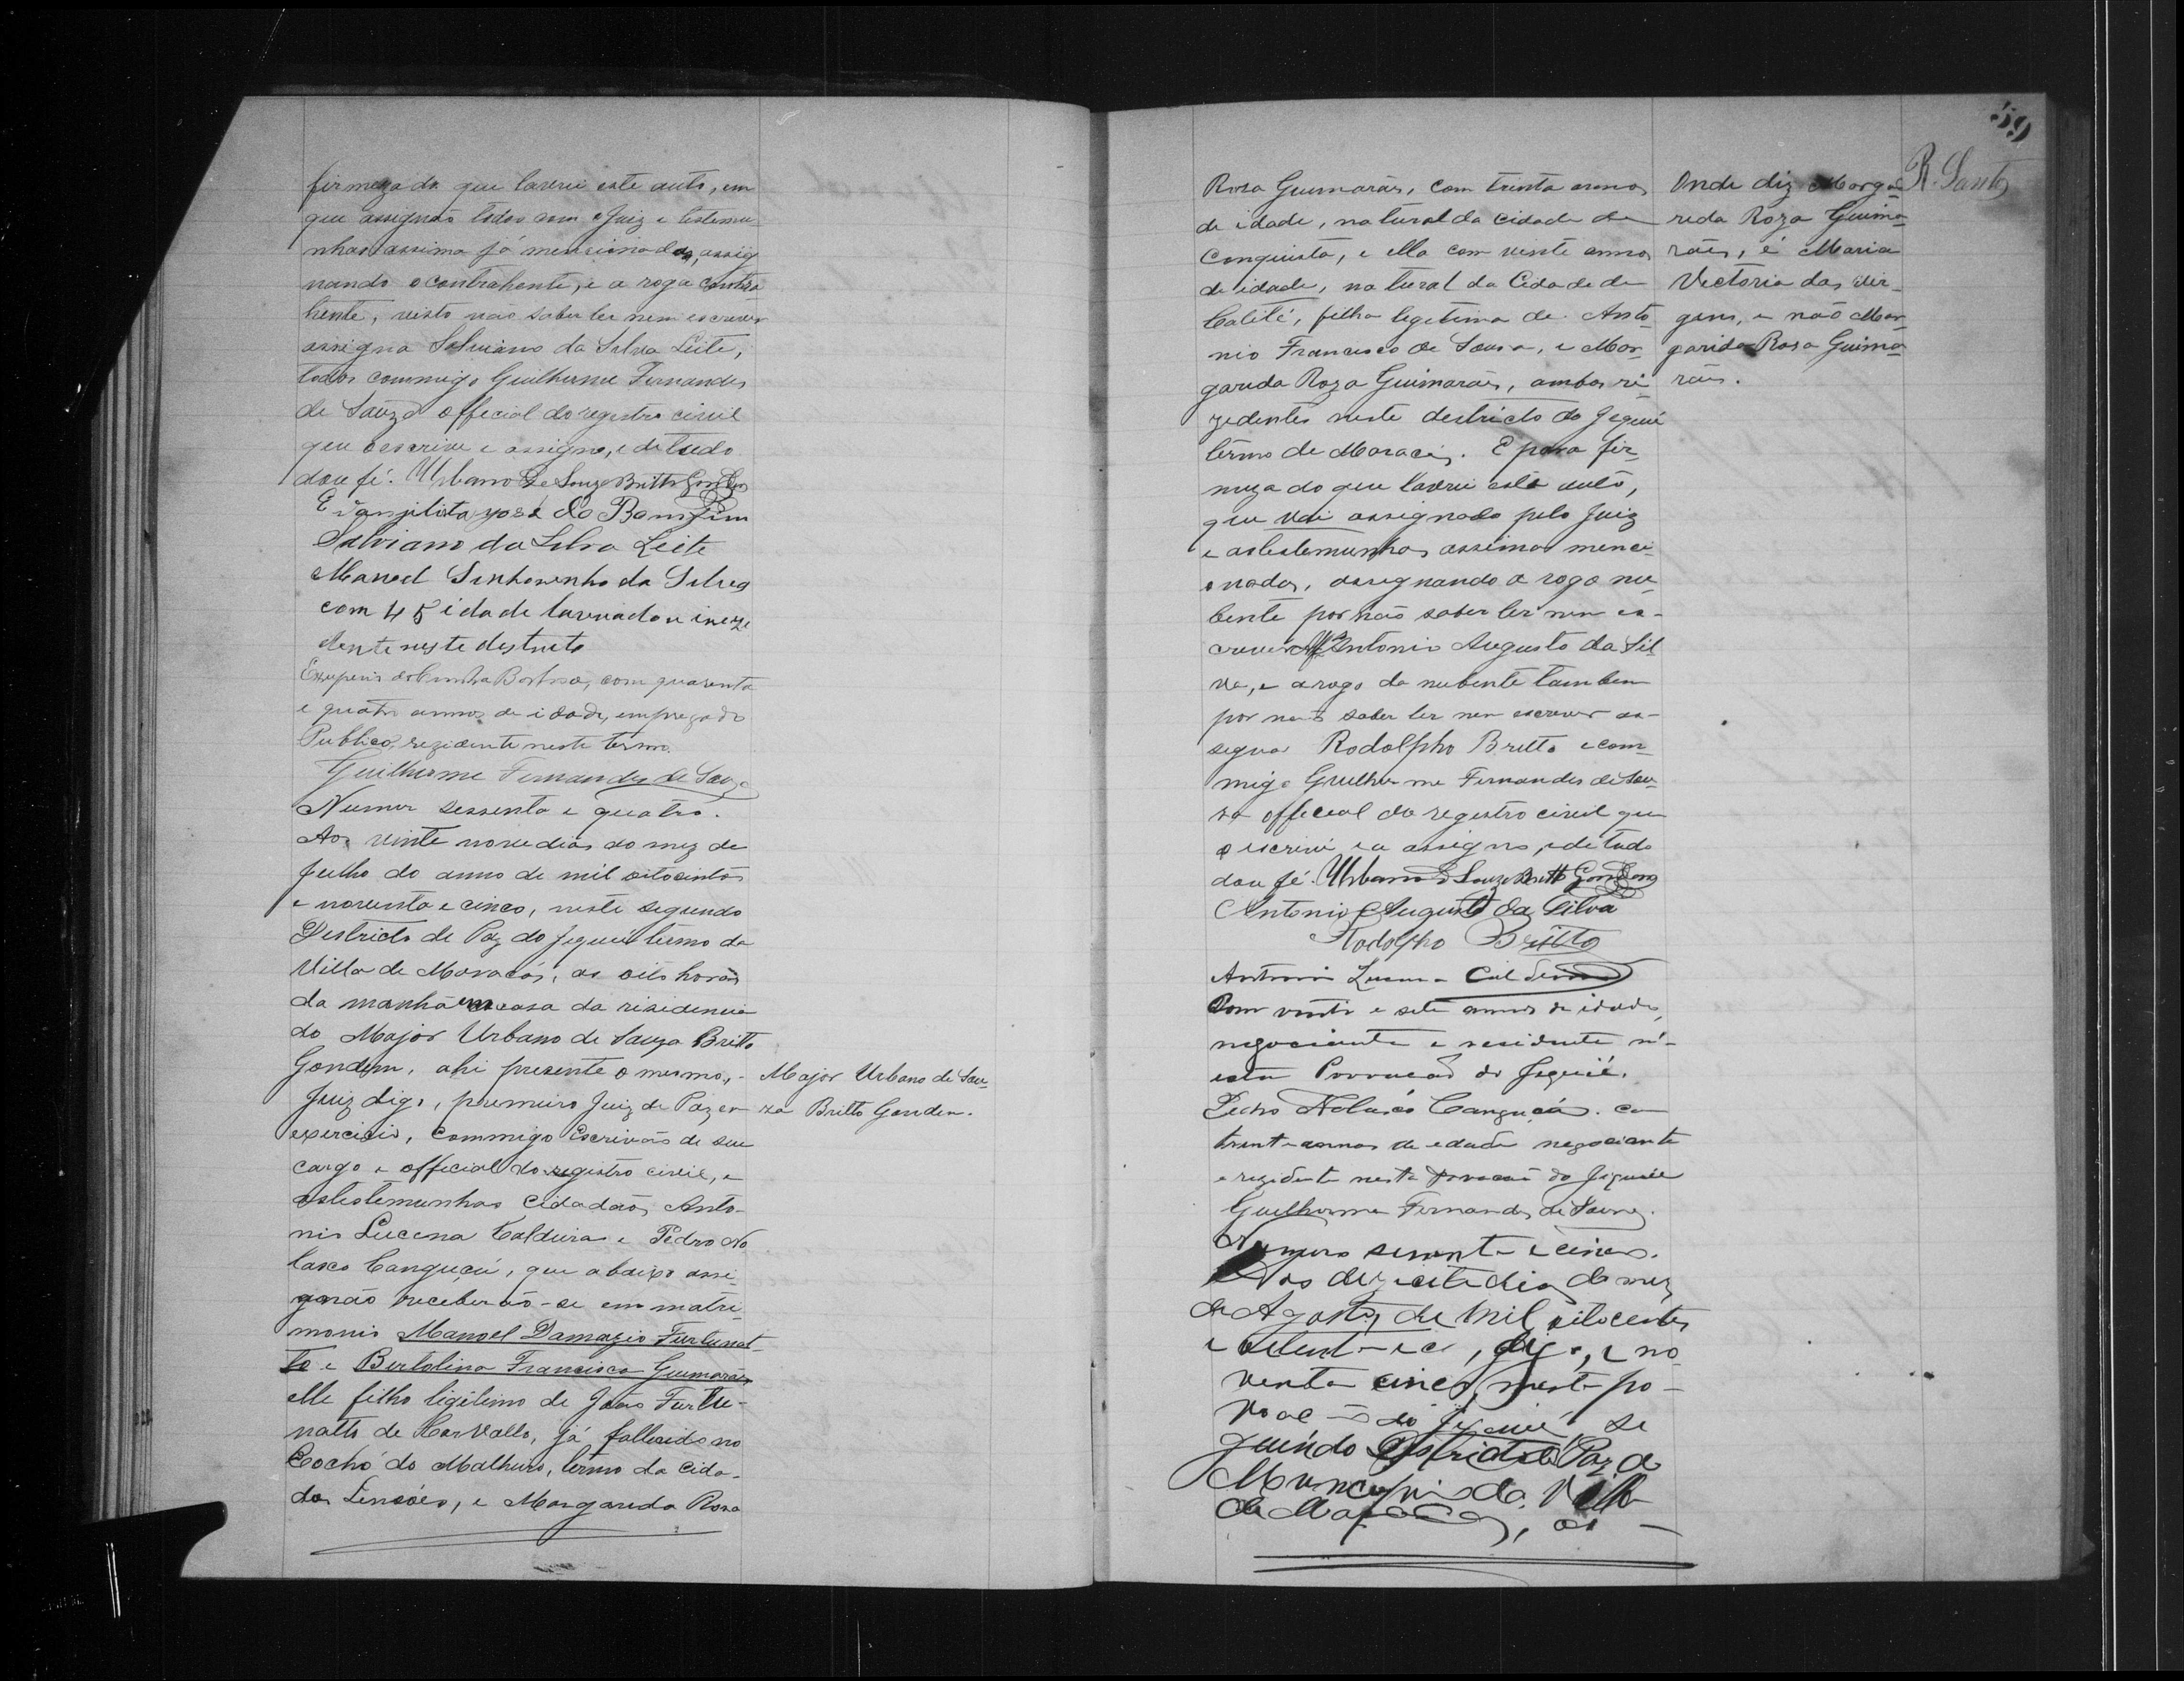 firmeza do que lavrei este auto, em
que assignão todos com o Juiz e testemu-
nhas assima já mencionados, assig
nando o contrahente, e a rogo contra
hente, visto não saber ler nem escrever
assigna Salviano da Silva Leite,
todos commigo Guilherme Fernandes
de Souza official do registro civil
que o escrivi e assigno, e de tudo
dou fé. Urbano de Souza Britto Gondim
Evangilista José do Bomfim
Salviano da Silva Leite
Manoel Sinhorinho da Silva
com 45 idade lavrador e reze
dente neste destricto
Exuperio da Cunha Barbosa, com quarenta
e quatro annos de idade, empregado
Publico, rezidente neste termo.
Guilherme Fernandes de Souza
Numer sessenta e quatro.
Aos vinte nove dias do mez de
Julho do anno de mil oitocentos
e noventa e cinco, neste segundo
Destricto de Paz do Jequié termo da
Villa de Maracás, as oito horas
da manhã em casa da risidencia
do Major Urbano de Souza Britto
Gondim, ahi presente o mesmo,
Juiz digo, primeiro Juiz de Paz em
exercicio, commigo Escrivão de seu
cargo e official do registro civil, e
as testemunhas Cidadãos Anto-
nio Lucena Caldeira e Pedro No
lasco Canguçú, que abaixo assi-
gnarão receberão-se em matri
monio Manoel Damazio Furtunat-
to e Bertolina Francisca Guimarães
elle filho ligitimo de João Furtu-
natto de Carvallo, já fallecido no
Cochó do Malheiro, termo da Cida-
dos Lensóes, e Margarida Rosa
Major Urbano de Sou-
za Britto Gondin.
59
R. Santos
Rosa Guimarães, com trinta annos
de idade, natural da cidade da
Conquista, e ella com vinte annos
de idade, natural da Cidade de
Caitité, filha legitima de Anto-
nio Francisco de Sousa, e Mar-
garida Roza Guimarães, ambos re
zedentes neste destricto do Jequié
termo de Maracás. E para fir-
meza do que lavrei este auto,
que vai assignado pelo Juiz
e as testemunhas assima menci-
onados, assignando a rogo nu-
bente por não saber ler nem es-
crever Antonio Augusto da Sil
va, e a rogo da nubente tambem
por não saber ler nem escrever as-
signa Rodolpho Britto e com-
migo Guilherme Fernandes de Sou-
za official do registro civil que
o escrivi, e a assigno, e de tudo
dou fé. Urbano de Souza Britto Gondim
Antonio Augusto da Silva
Rodolpho Britto
Antonio Lucena Caldeira
Com vinte e sete annos de idade,
negociante e residente n'-
esta Povoacão do Jequié.
Pedro Nolasco Canguçú. com
trinta annos de edade negociante
e rezidente nesta Povoacão do Jiquié
Guilherme Fernandes de Souza.
Numero sesenta e cinco.
Aos dez e sete dias do mez
de Agosto, de mil oitocentos
e digo, e no
venta cinco, nesta po-
voação do Jequié se
guindo Districto de Paz do
Municipio da Villa
de Maracás, as
Onde diz Marga-
rida Roza Guima-
rães, é Maria
Victoria das Vir-
gens, e não Mar-
garida Rosa Guima-
rães.